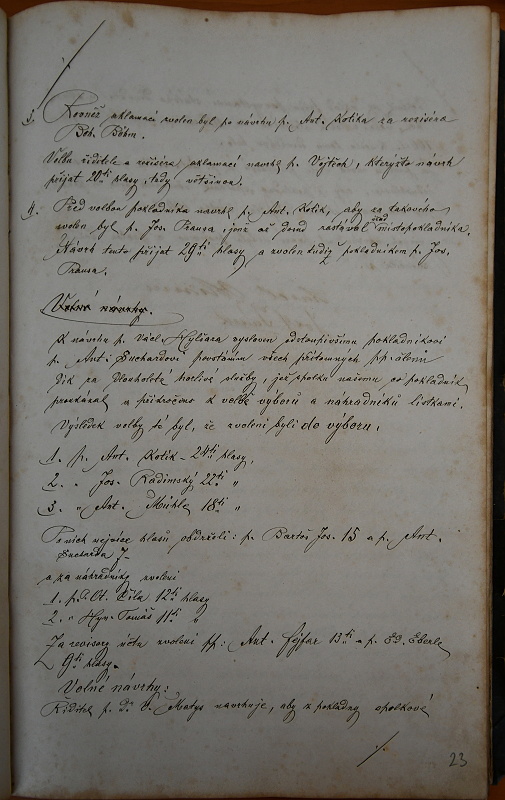 3. Rovněž aklamací zvolen byl po návrhu p. Ant. Kotíka za režiséra
Boh. Böhm.
Volbu ředitele a režiséra aklamací navrhl p. Vojtěch, kterýžto návrh
přijat 20ti hlasy, tedy většinou.
4. Před volbou pokladníka navrhl p. Ant. Kotík, aby za takového
zvolen byl p. Jos. Prausa, jenž až dosud zastával úřad místopokladníka.
Návrh tento přijat 29ti hlasy a zvolen tudíž pokladníkem p. Jos.
Prausa.
Volné návrhy.
K návrhu p. Václ. vysloven odstoupivšímu pokladníkovi
p. Ant. Suchardovi povstáním všech přítomných pp. členů
dík za dlouholeté horlivé služby, jež spolku našemu co pokladník
prokázal a přikročeno k volbě výboru a náhradníků lístkami.
Výsledek volby té byl, že zvoleni byli do výboru,
1. p. Ant. Kotík – 24ti hlasy,
2. „ Jos. Radimský 22ti „
3. „ Ant. Mühle 18ti „
Po nich nejvíce hlasů obdrželi: p. Bartoš Jos. 15 a p. Ant.
Sucharda 7
a za náhradníky zvoleni
1. p. Ot. Číla 12ti hlasy
2. „ Hyn. Tomáš 11ti „
Za revisory účtu zvoleni pp: Ant. Fejfar 13ti a p. Ed. Eberle
9ti hlasy.
Volné návrhy:
Ředitel p. Dr. Matys navrhuje, aby z pokladny spolkové
23